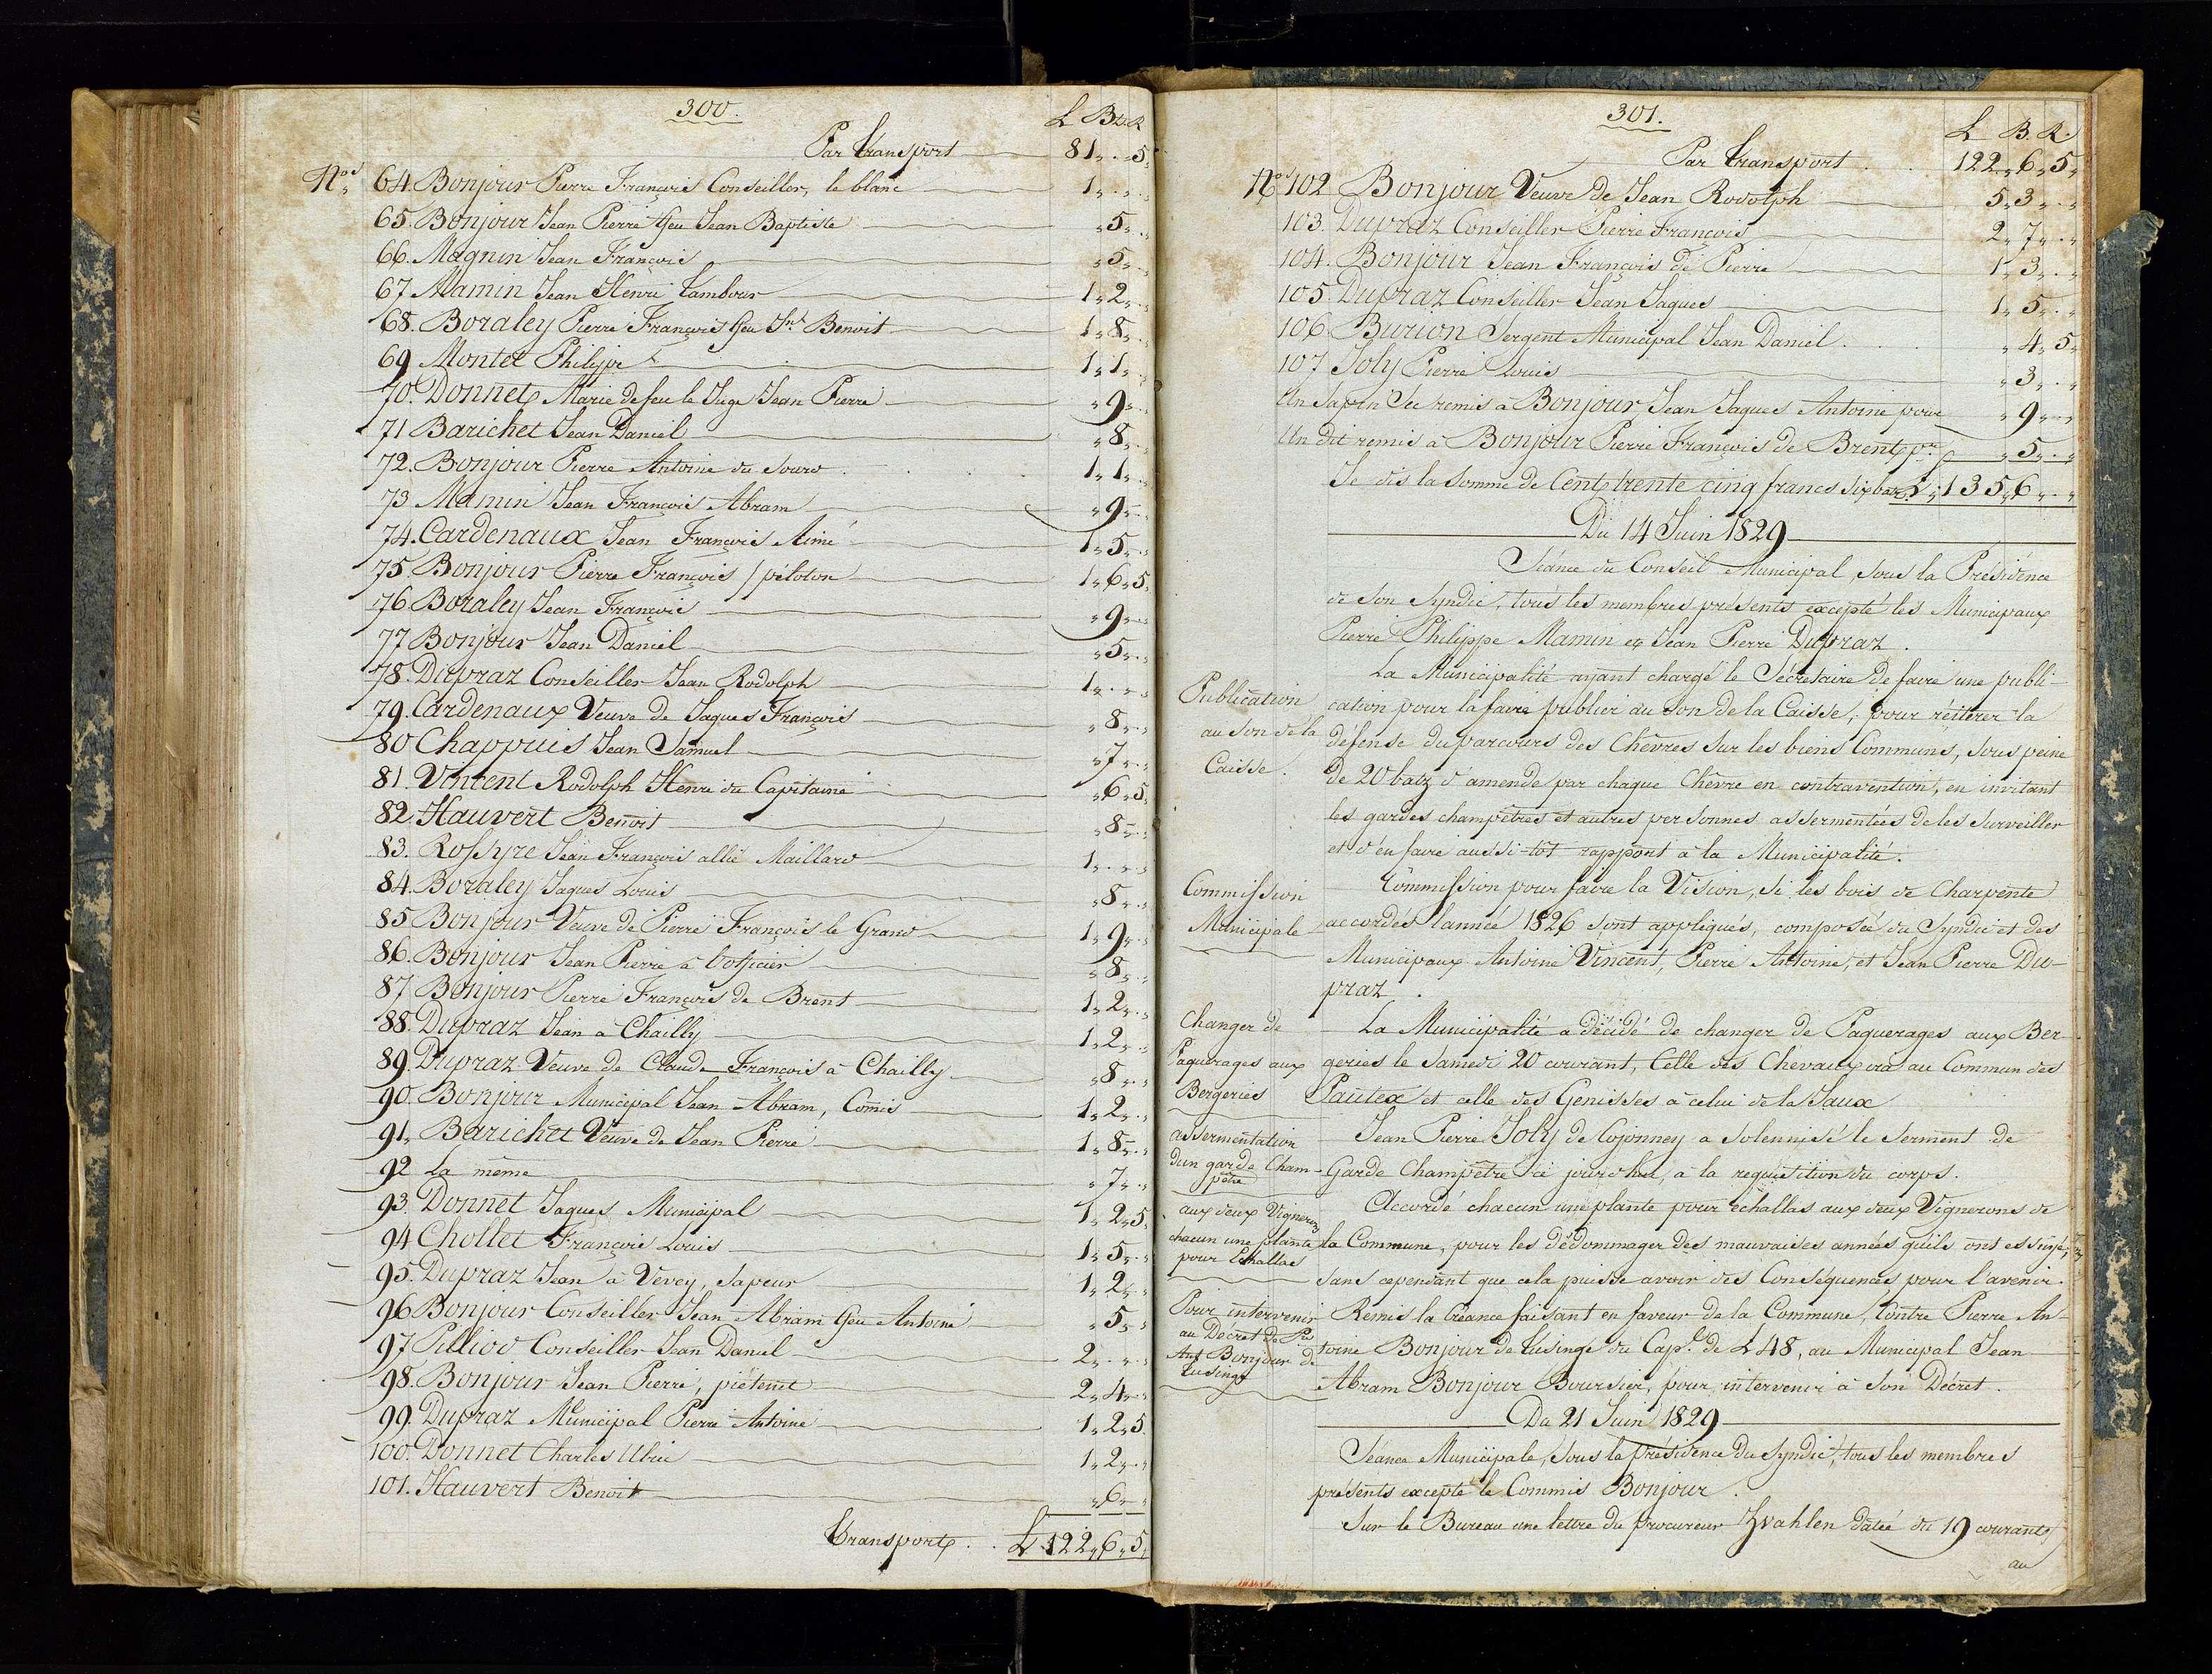 300.
L Bz. R
Par transport 81 „ . „ 5 „
Nos 64. Bonjour Pierre François Conseiller, le blanc 1 „ . „ . „
65. Bonjour Jean Pierre feu Jean Baptiste „ 5 „ . „
66. Magnin Jean François „ 5 „ . „
67 Mamin Jean Henri tambour 1 „ 2 „ . „
68. Boraley Pierre François feu Benoit 1 „ 8 „ . „
69 Montet Philippe 1 „ 1 „ . „
70. Donnet Marie de feu le Juge Jean Pierre „ 9 „ . „
71 Barichet Jean Daniel „ 8 „ . „
72. Bonjour Pierre Antoine du Sourd 1 „ 1 „ . „
73 Mamin Jean François Abram „ 9 „ . „
74. Cardenaux Jean François Aimé 1 „ 5 „ . „
75. Bonjour Pierre François / péloton 1 „ 6 „ 5 „
76 Boraley Jean François „ 9 „ . „
77 Bonjour Jean Daniel „ 5 „ . „
78. Dupraz Conseiller Jean Rodolph 1 „ . „ . „
79. Cardenaux Veuve de Jaques François „ 8 „ . „
80 Chappuis Jean Samuel „ 7 „ . „
81. Vincent Rodolph Henri du Capitaine „ 6 „ 5 „
82. Hauvert Benoit „ 8 „ . „
83. Rossyre Jean François allié Maillard 1 „ . „ . „
84. Boraley Jaques Louis „ 8 „ . „
85 Bonjour Veuve de Pierre François le Grand 1 „ 9 „ . „
86. Bonjour Jean Pierre à l'officier „ 8 „ . „
87 Bonjour Pierre François de Brent 1 „ 2 „ . „
88. Dupraz Jean à Chailly 1 „ 2 „ . „
89. Dupraz Veuve de Claude François à Chailly „ 8 „ . „
90. Bonjour Municipal Jean Abram, Comis 1 „ 2 „ . „
91. Barichet Veuve de Jean Pierre 1 „ 8 „ . „
92 La même „ 7 „ . „
93. Donnet Jaques Municipal 1 „ 2 „ 5 „
94 Chollet François Louis 1 „ 5 „ . „
95. Dupraz Jean à Vevey, Sapeur 1 „ 2 „ . „
96 Bonjour Conseiller Jean Abram feu Antoine „ 5 „ . „
97 Pilliod Conseiller Jean Daniel 2 „ . „ . „
98. Bonjour Jean Pierre, piétenet 2 „ 4 „ . „
99. Dupraz Municipal Pierre Antoine 1 „ 2 „ 5 „
100. Donnet Charles Ulric 1 „ 2 „ . „
101. Hauvert Benoit „ 6 „ . „
Transport . . L 122 „ 6 „ 5 „
301.
L B. R.
Par transport . . 122 „ 6 „ 5 „
Nos 102 Bonjour Veuve de Jean Rodolph 5 „ 3 „ . „
103. Dupraz Conseiller Pierre François 2 „ 7 „ . „
104. Bonjour Jean François de Pierre 1 „ 3 „ . „
105. Dupraz Conseiller Jean Jaques 1 „ 5 „ . „
106. Burion Sergent Municipal Jean Daniel „ 4 „ 5 „
107 Joly Pierre Louis „ 3 „ . „
Un Sapin Sec remis à Bonjour Jean Jaques Antoine pour „ 9 „ . „
Un dit remis à Bonjour Pierre François de Brent pr „ 5 „ . „
Je dis la Somme de Cent trente cinq francs six batz L 135 „ 6 „ . „
Du 14 Juin 1829
Séance du Conseil Municipal, sous la Présidence
de Son Syndic, tous les membres présents excepté les Municipaux
Pierre Philippe Mamin et Jean Pierre Dupraz.
Publication
au son de la
Caisse.
La Municipalité ayant chargé le Sécretaire de faire une publi-
cation pour la faire publier au son de la Caisse, pour réïterer la
défense du parcours des Chêvres sur les biens Communs, sous peine
de 20 batz d'amende par chaque Chêvre en contravention, en invitant
les gardes champêtres et autres personnes assermentées de les surveiller
et d'en faire aussi-tôt rapport à la Municipalité.
Commission
Municipale
Commission pour faire la Vision, si les bois de Charpente
accordés l'année 1826 sont appliqués, composée du Syndic et des
Municipaux Antoine Vincent, Pierre Antoine, et Jean Pierre Du-
praz.
Changer de
Paquerages aux
Bergeries
La Municipalité a décidé de changer de Paquerages aux Ber-
geries le Samedi 20 courant, Celle des Chevaux ira au Commun des
Pautex et celle des Genisses à celui de la Saux
assermentation
d'un garde Cham-
pêtre
Jean Pierre Joly de Cojonney a solennisé le serment de
Garde Champêtre ce jourd'hui, à la requisition du corps.
aux deux Vignerons
chacun une plante
pour Echallas
Accordé chacun une plante pour échallas aux deux Vignerons de
la Commune, pour les dédommager des mauvaises années qu'ils ont essuyé,
sans cependant que cela puisse avoir des Conséquences pour l'avenir.
Pour intervenir
au Décret de Pre
Ant Bonjour de
tusinge
Remis la Créance faisant en faveur de la Commune, Contre Pierre An-
toine Bonjour de tusinge du Cap.l de L 48, au Municipal Jean
Abram Bonjour Boursier, pour intervenir à son Décret.
Du 21 Juin 1829
Séance Municipale, sous la présidence du Syndic, tous les membres
présents excepté le Commis Bonjour.
Sur le Bureau une lettre du procureur Zvahlen datée du 19 courant
au